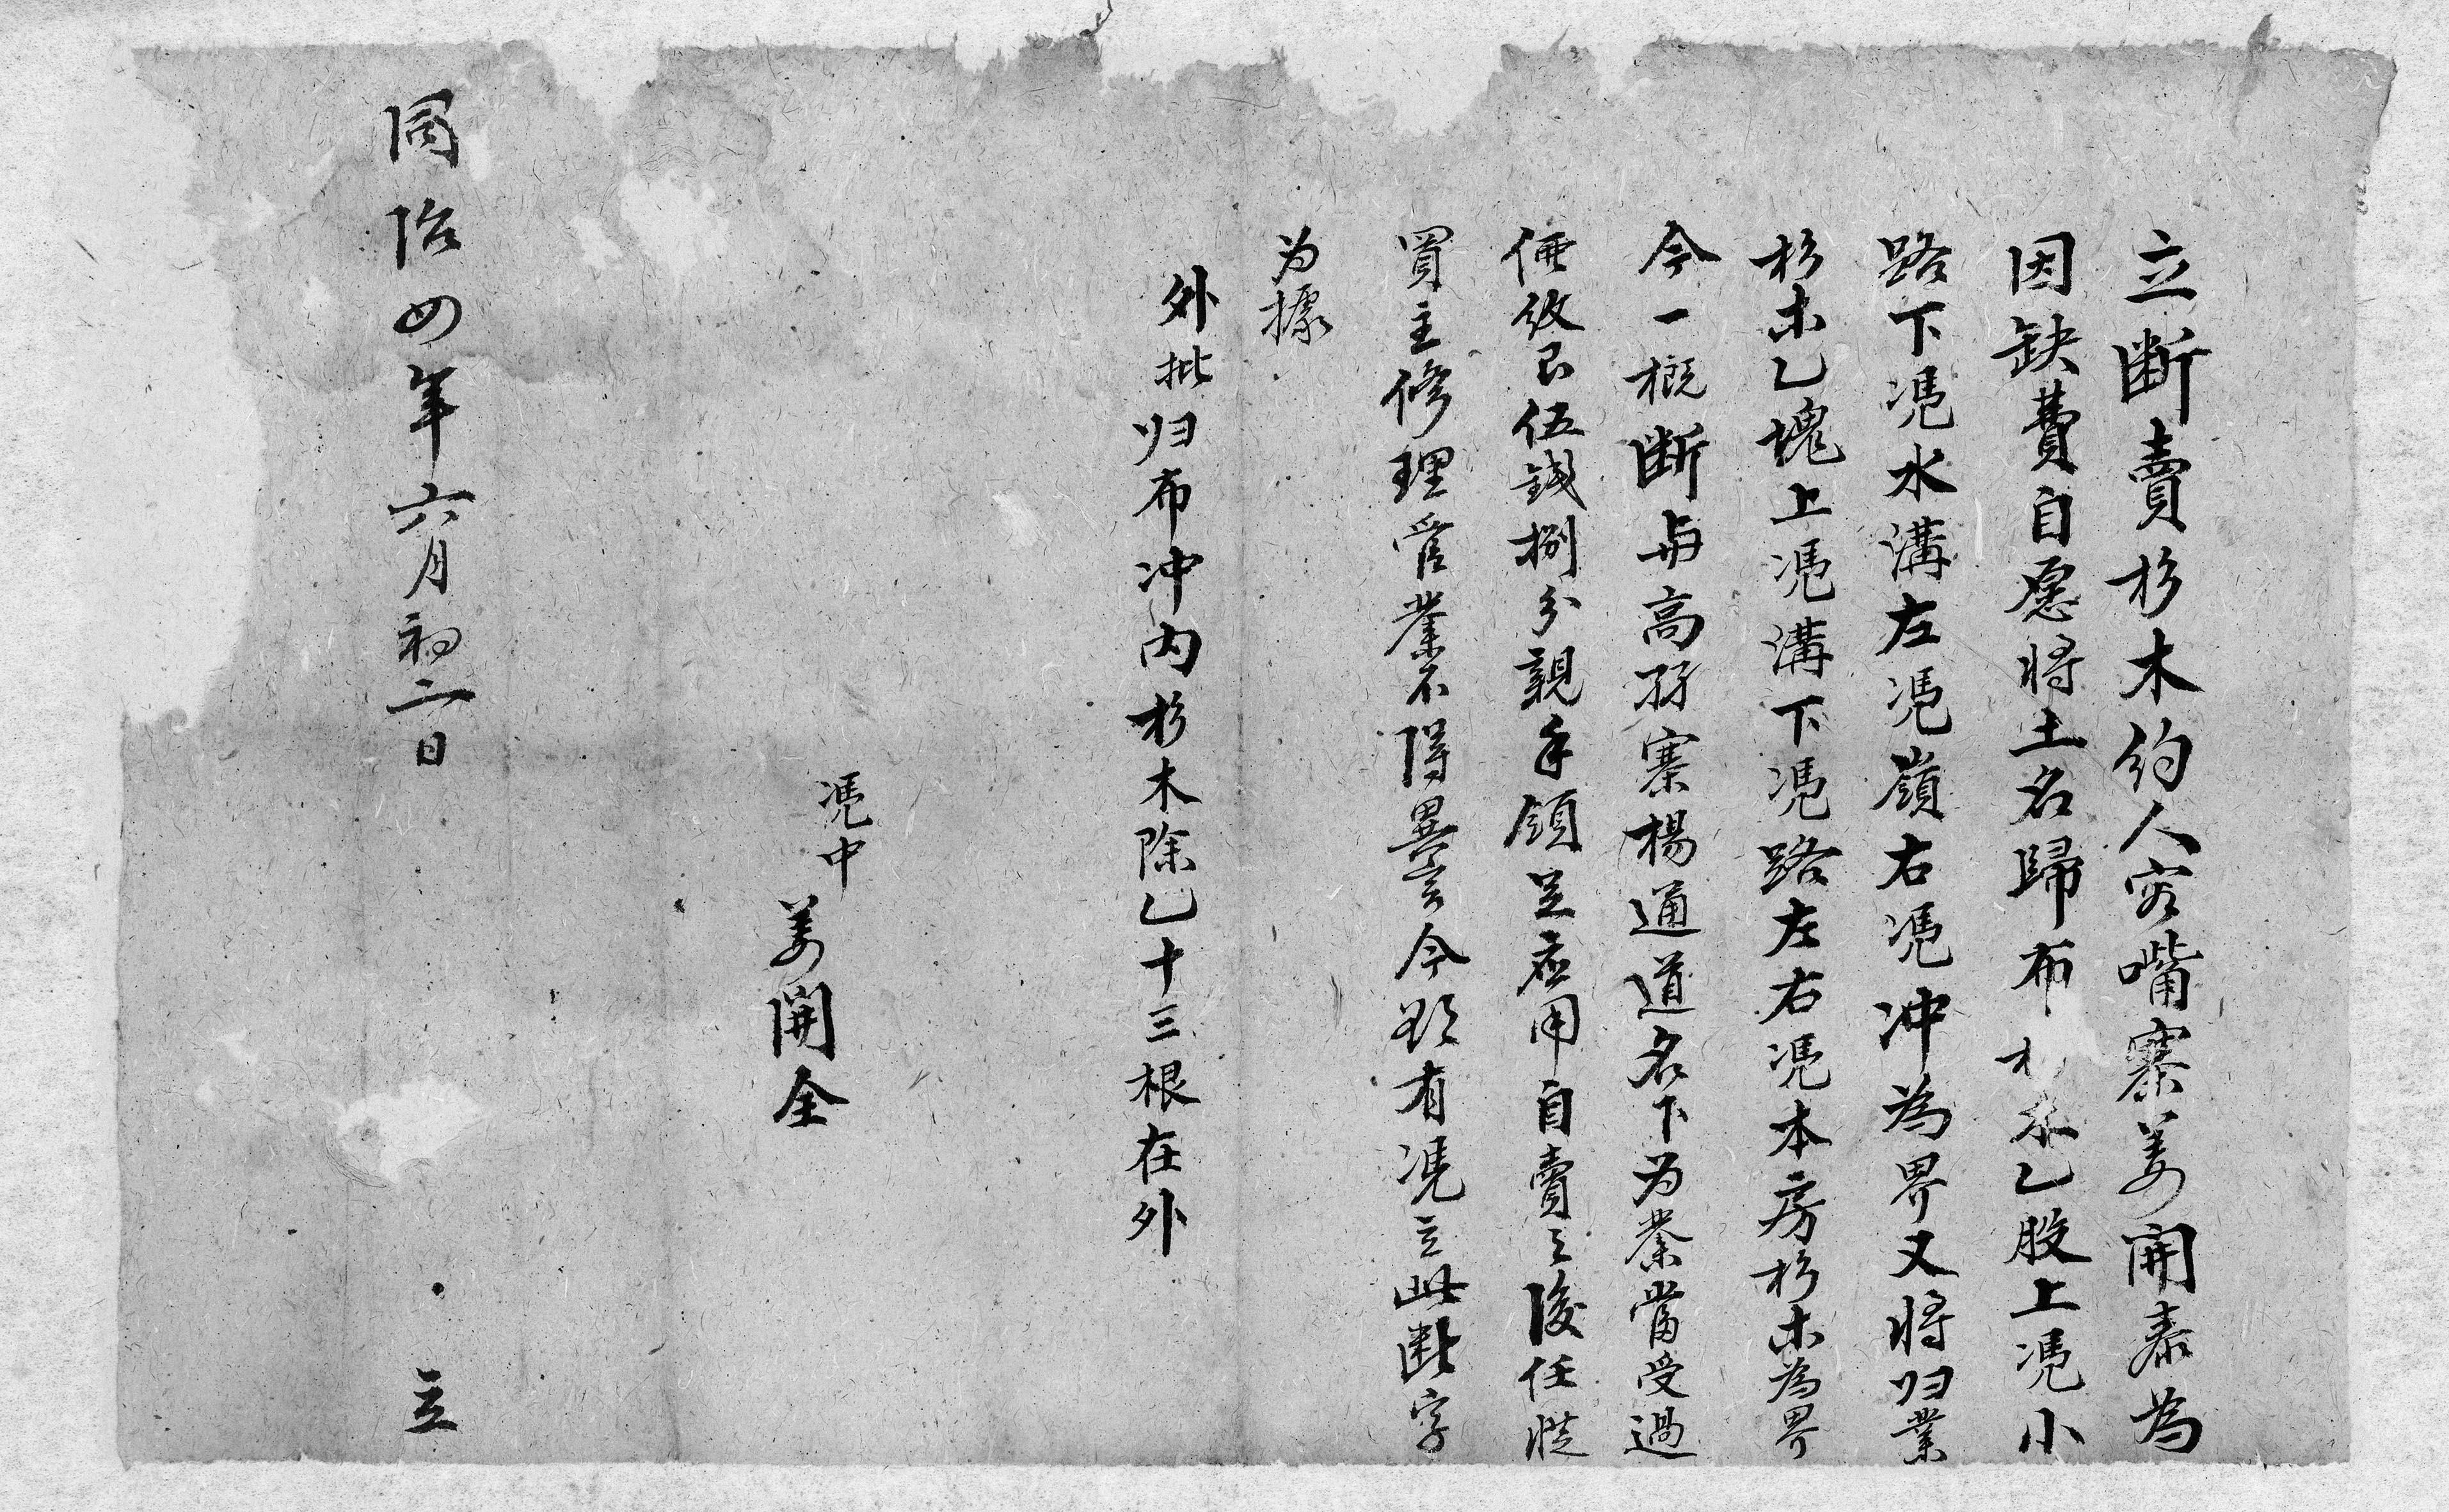 立断賣杉木約人容嘴寨姜開泰為
因缺費自愿將土名歸布杉木乙股上凴小
路下凴水溝左凴嶺右凴冲為界又將归業
杉木乙塊上凴溝下凴路左右凴本房杉木為界
今一概断与高孖寨楊通道名下为業當受過
価紋艮伍錢捌分親手領足應用自賣之後任從
買主修理管業不得異言今欲有凴立此断字
为據
外批归布冲内杉木除乙十三根在外
凴中
姜開全
同治四年六月初二日 立